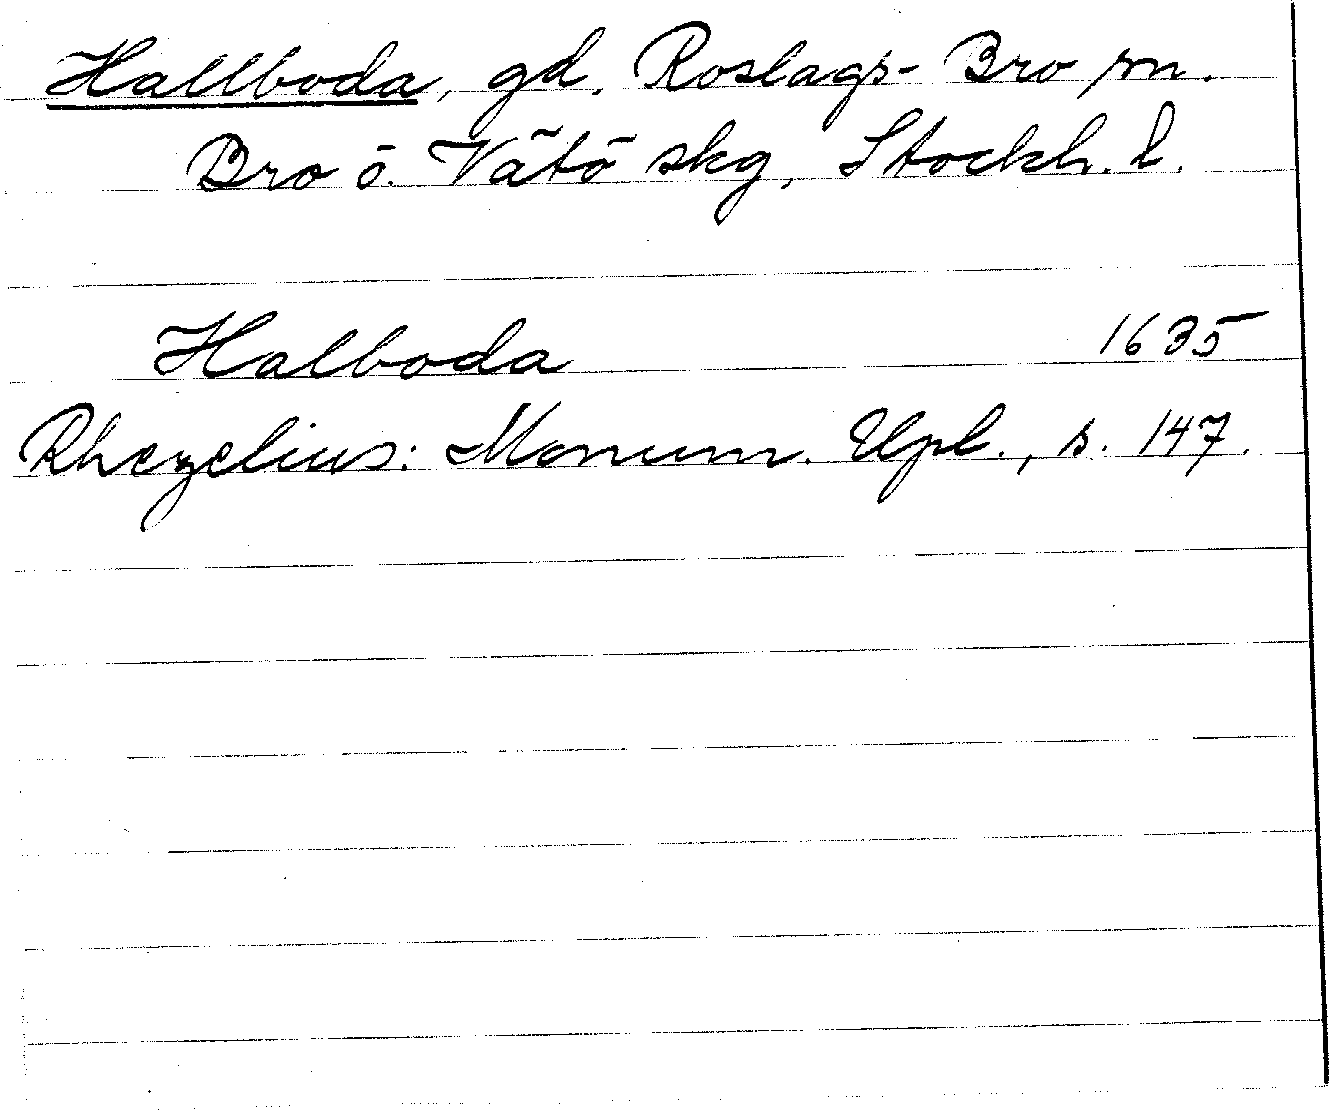 Hallboda, gd, Roslags-Bro sn.
Bro o. Vätö skg, Stockh. l.
Halboda 1635
Rhezelius: Monum. Upl., s. 147.